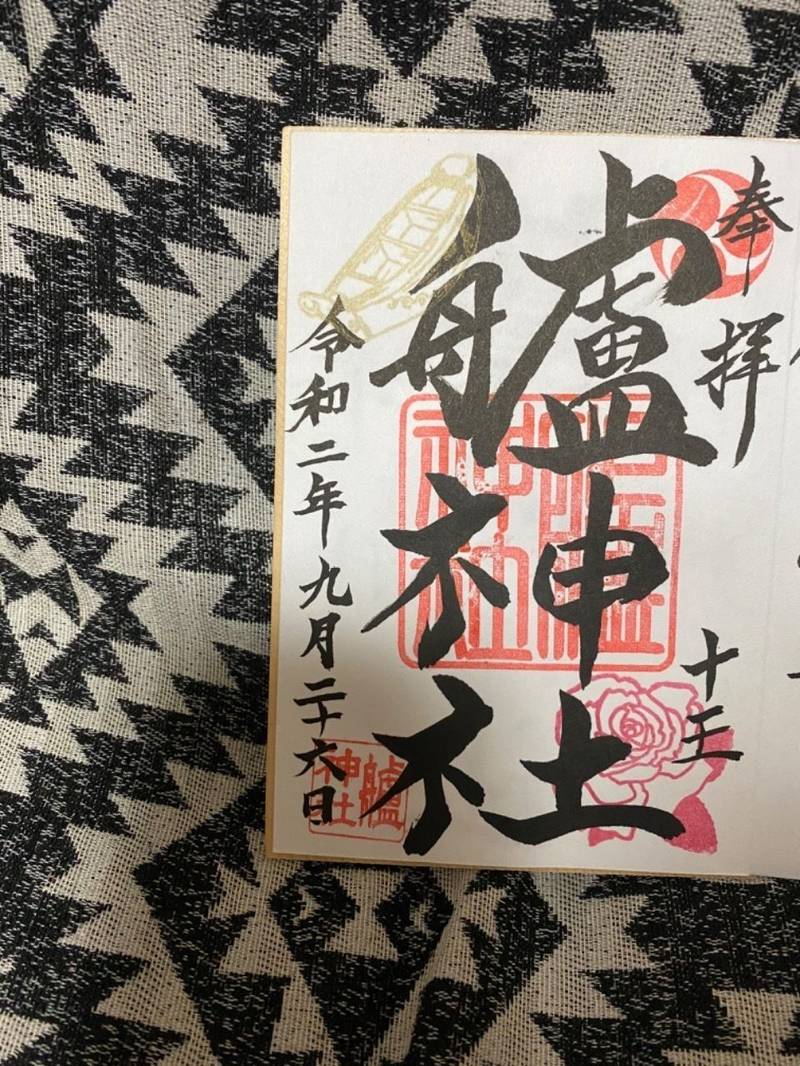 奉拝
十王
艫神社
令和二年九月二十六日
艫神社